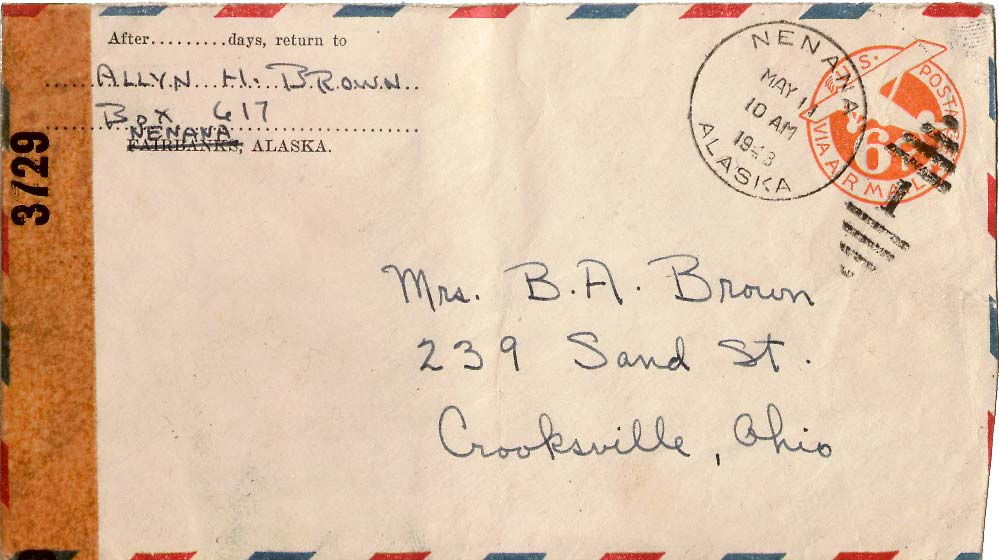 After.........days, return to
ALLYN H. BROWN
Box 617
NENANA
FAIRBANKS, ALASKA.
3729
NENANA
MAY 11
10 AM
1943
ALASKA
U.S. POSTAGE
6c
VIA AIR MAIL
1
Mrs. B. A. Brown
239 Sand St.
Crooksville, Ohio